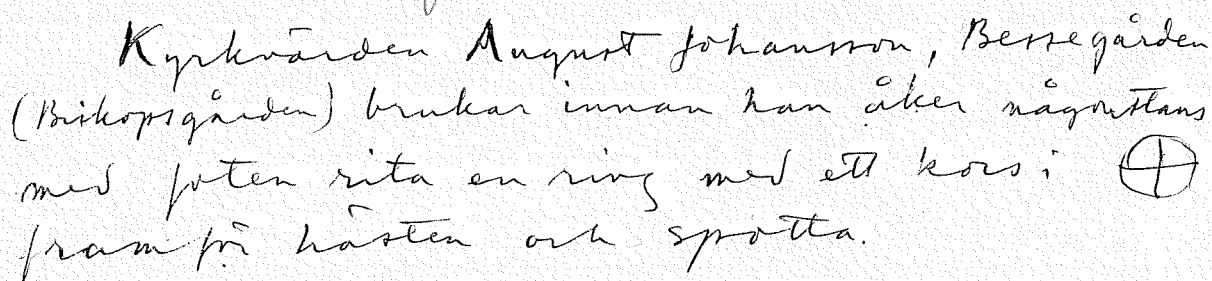 Kyrkvärden August Johansson, Bessegården
(Biskopsgården) brukar innan han åker någonstans
med foten rita en ring med ett kors i
framför hästen och spotta.